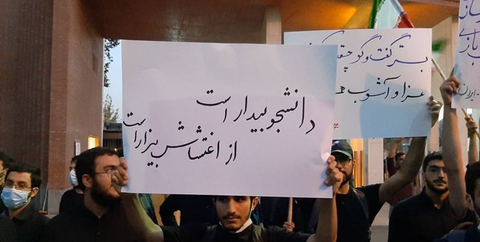 دانشجو بیدار است
از اغتشاش بیزار است
بستر گفت و گو
عزا و آشوب
ایران